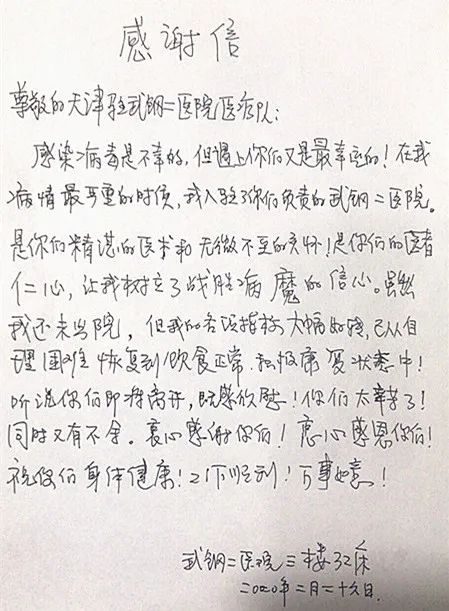 感谢信
尊敬的天津驻武钢二医院医疗队:
感染病毒是不幸的,但遇上你们又是最幸运的!在我
病情最严重的时候,我入驻了你们负责的武钢二医院。
是你们精湛的医术和无微不至的关怀!是你们的医者
仁心,让我树立了战胜病魔的信心。虽然
我还未出院,但我的各项指标大幅好转,已从自
理困难恢复到饮食正常.积极康复状态中!
听说你们即将离开,既感欣慰!你们太辛苦了!
同时又有不舍。衷心感谢你们!衷心感恩你们!
祝你们身体健康!工作顺利!万事如意!
武钢二医院三楼32床
二0二0年二月二十六日.